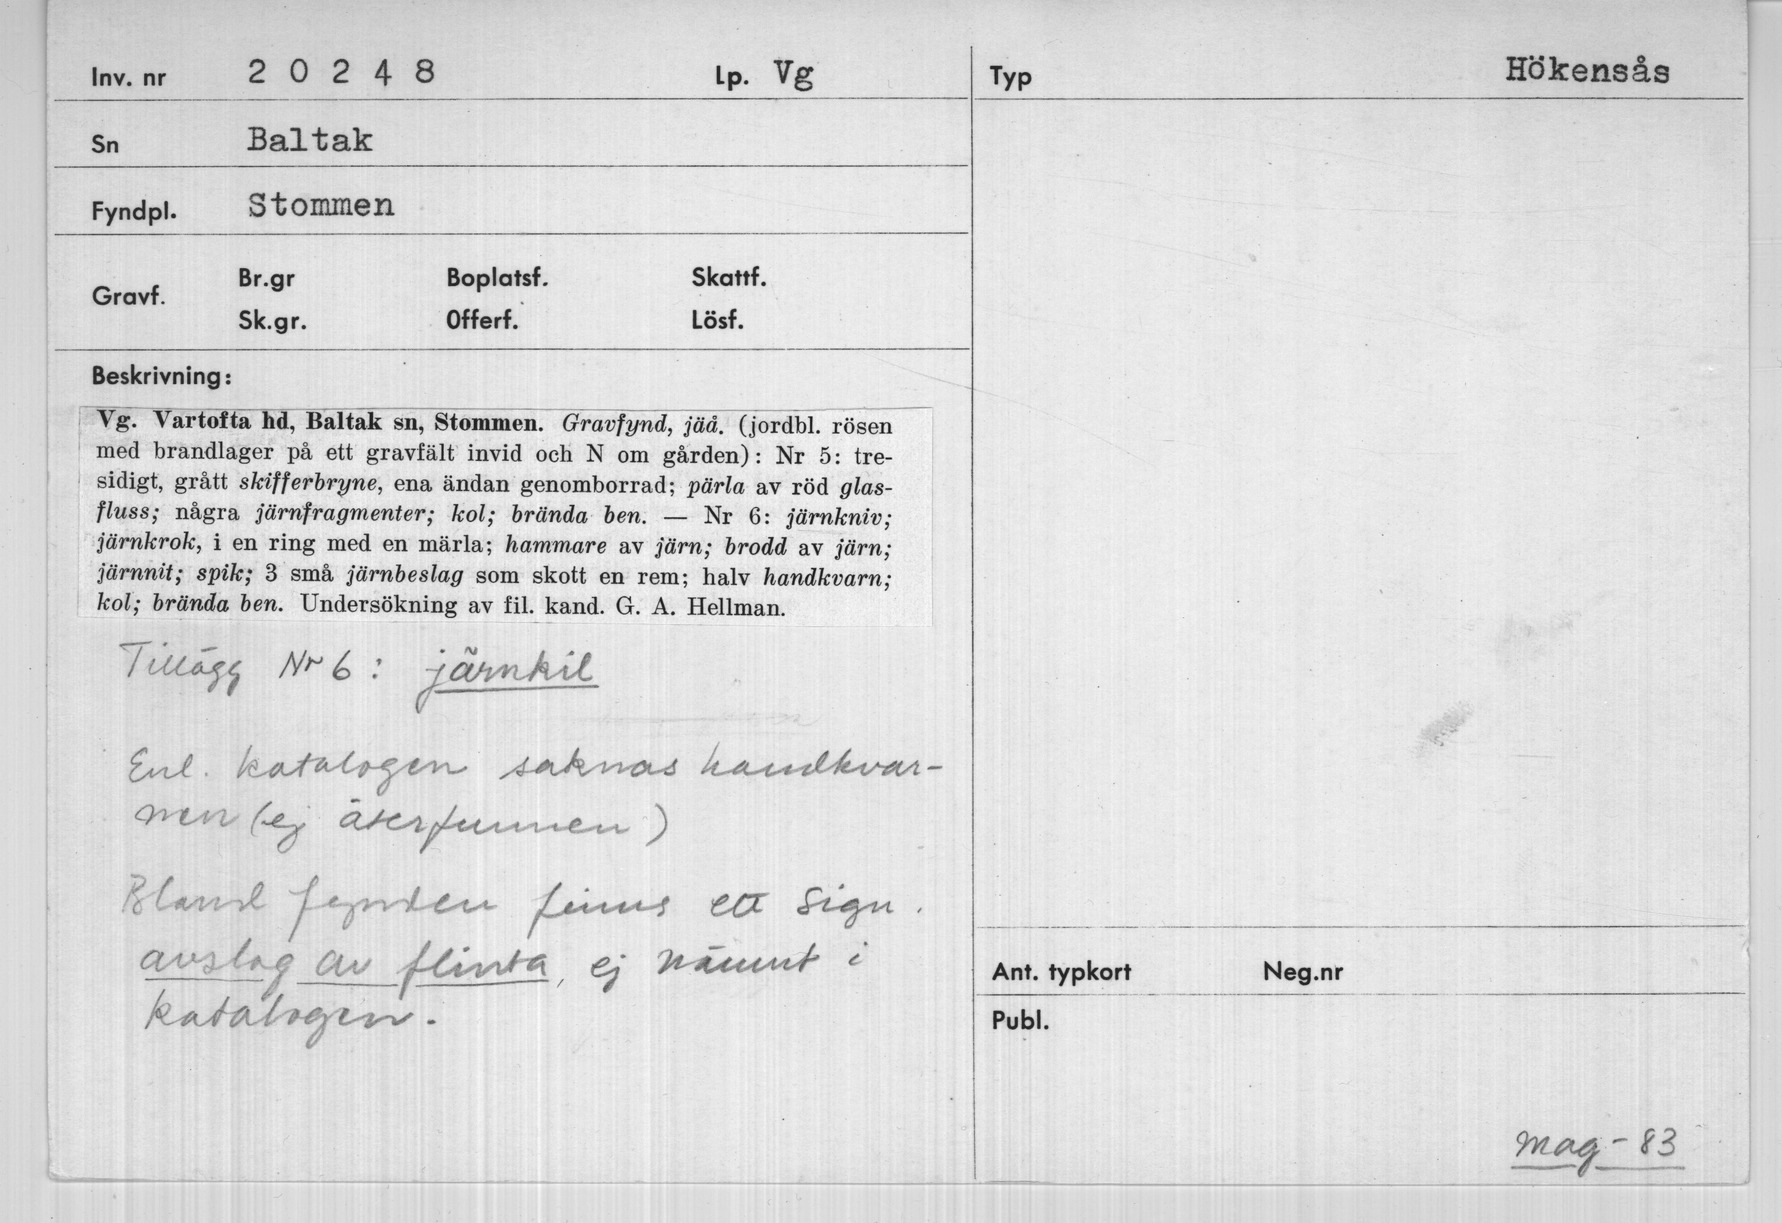 Inv. nr 20248 Lp. Vg
Sn Baltak
Fyndpl. Stommen
Gravf. Br.gr Boplatsf. Skattf.
Sk.gr. Offerf. Lösf.
Beskrivning:
Vg. Vartofta hd, Baltak sn, Stommen. Gravfynd, jäå. (jordbl. rösen
med brandlager på ett gravfält invid och N om gården): Nr 5: tre-
sidigt, grått skifferbryne, ena ändan genomborrad; pärla av röd glas-
fluss; några järnfragmenter; kol; brända ben. — Nr 6: järnkniv;
järnkrok, i en ring med en märla; hammare av järn; brodd av järn;
järnnit; spik; 3 små järnbeslag som skott en rem; halv handkvarn;
kol; brända ben. Undersökning av fil. kand. G. A. Hellman.
Tillägg Nr 6: järnkil
Enl. katalogen saknas handkvar-
nen (ej återfunnen)
Bland fynden finns ett sign.
avslag av flinta, ej nämnt i
katalogen.
Typ Hökensås
Ant. typkort Neg.nr
Publ.
Mag-83